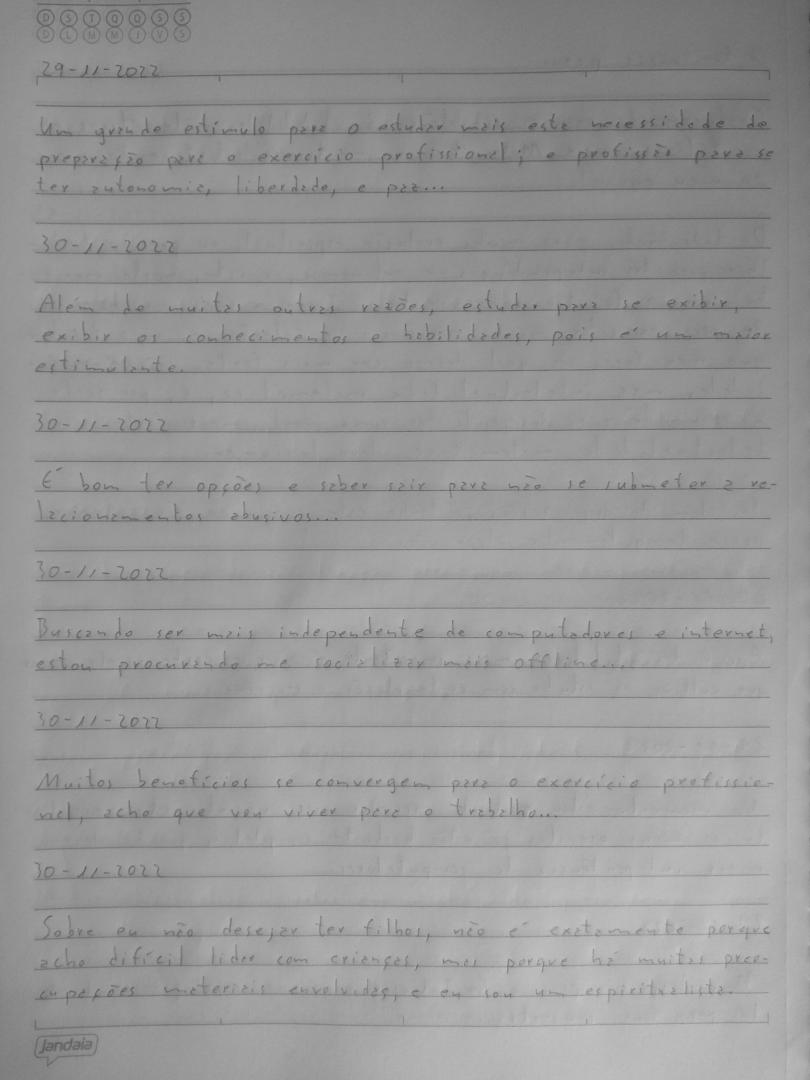 D S T Q Q S S
D L M M J V S
29-11-2022
Um grande estímulo para o estudar mais esta necessidade de
preparação para o exercício profissional; e profissão para se
ter autonomia, liberdade, e paz...
30-11-2022
Além de muitas outras razões, estudar para se exibir,
exibir os conhecimentos e habilidades, pois é um maior
estimulante.
30-11-2022
É bom ter opções e saber sair para não se submeter a re-
lacionamentos abusivos...
30-11-2022
Buscando ser mais independente de computadores e internet,
estou procurando me socializar mais offline...
30-11-2022
Muitos benefícios se convergem para o exercício profissio-
nal, acho que vou viver para o trabalho...
30-11-2022
Sobre eu não desejar ter filhos, não é exatamente porque
acho difícil lidar com crianças, mas porque há muitas preo-
cupações materiais envolvidas, e eu sou um espiritualista.
jandaia